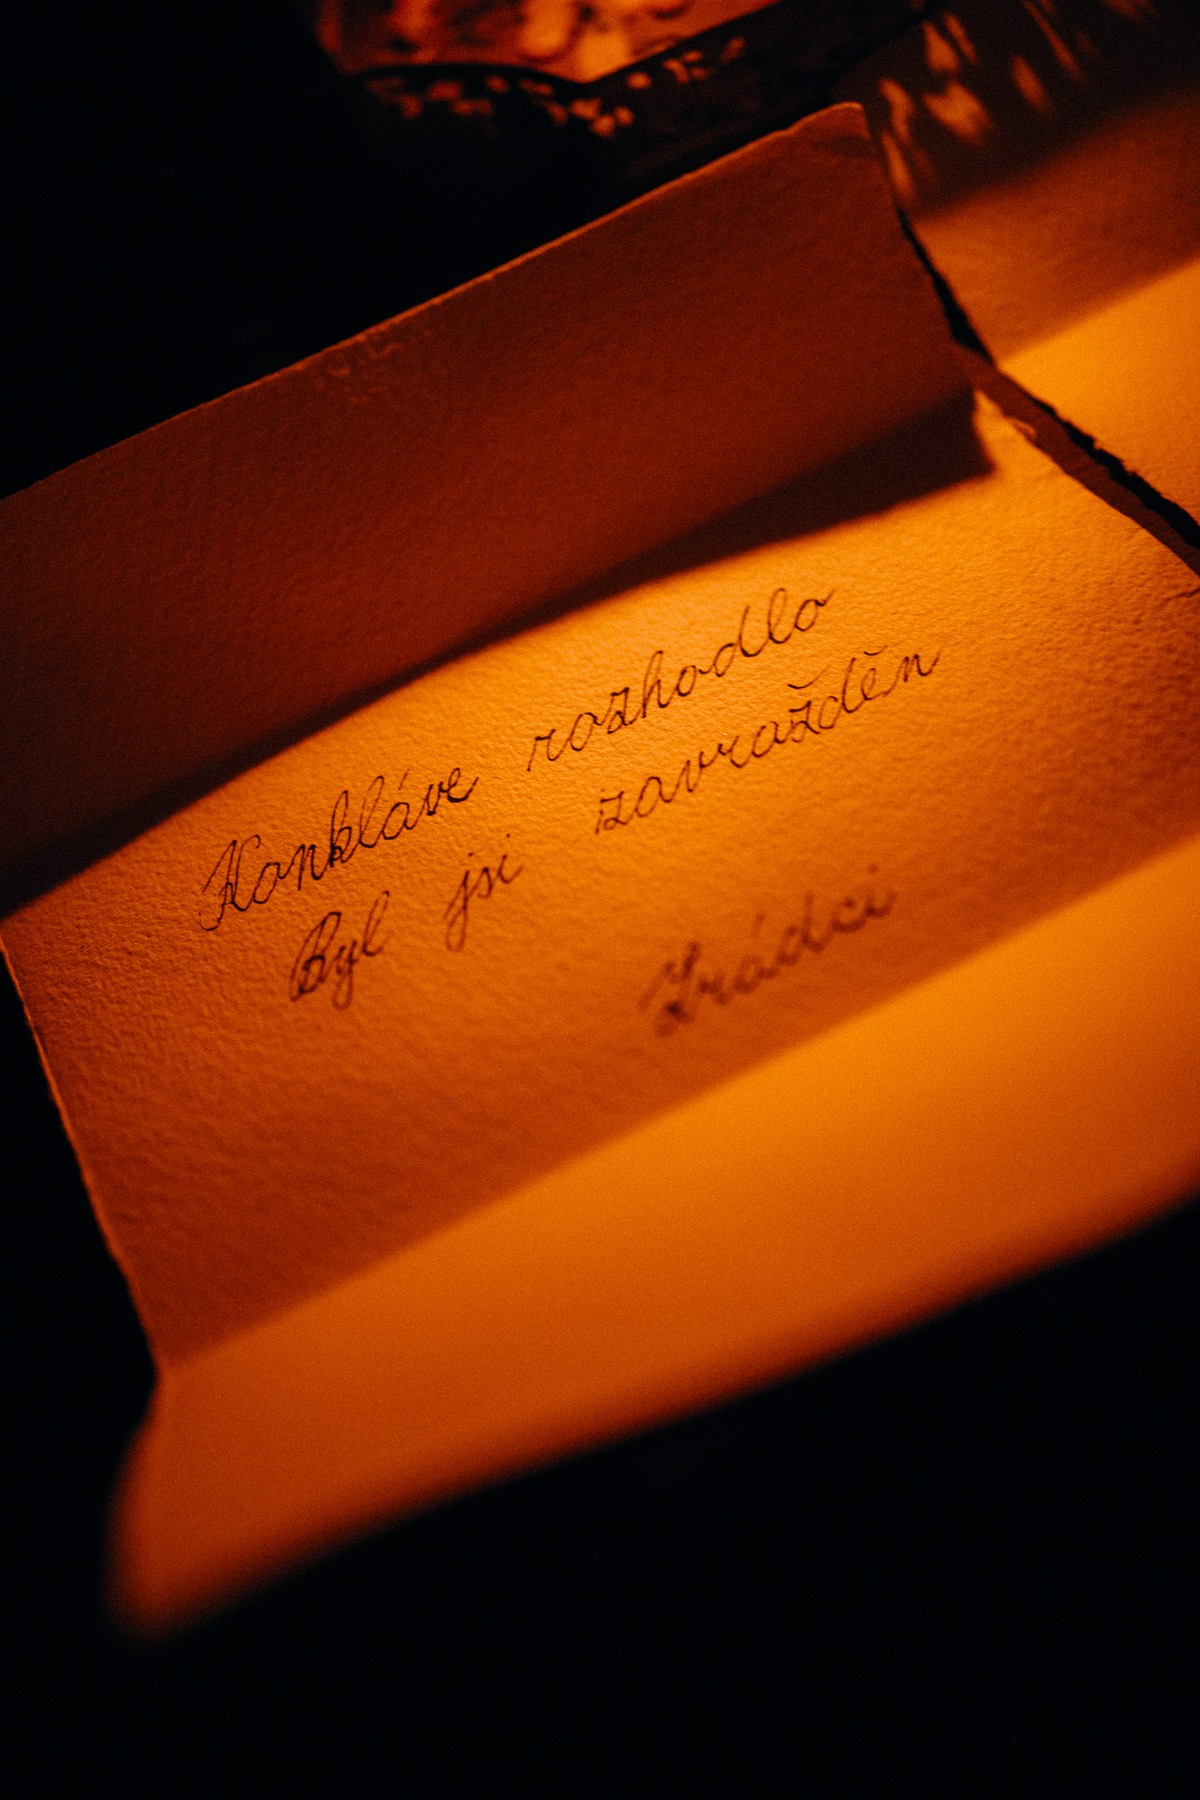 Konkláve rozhodlo
Byl jsi zavražděn
Zrádci